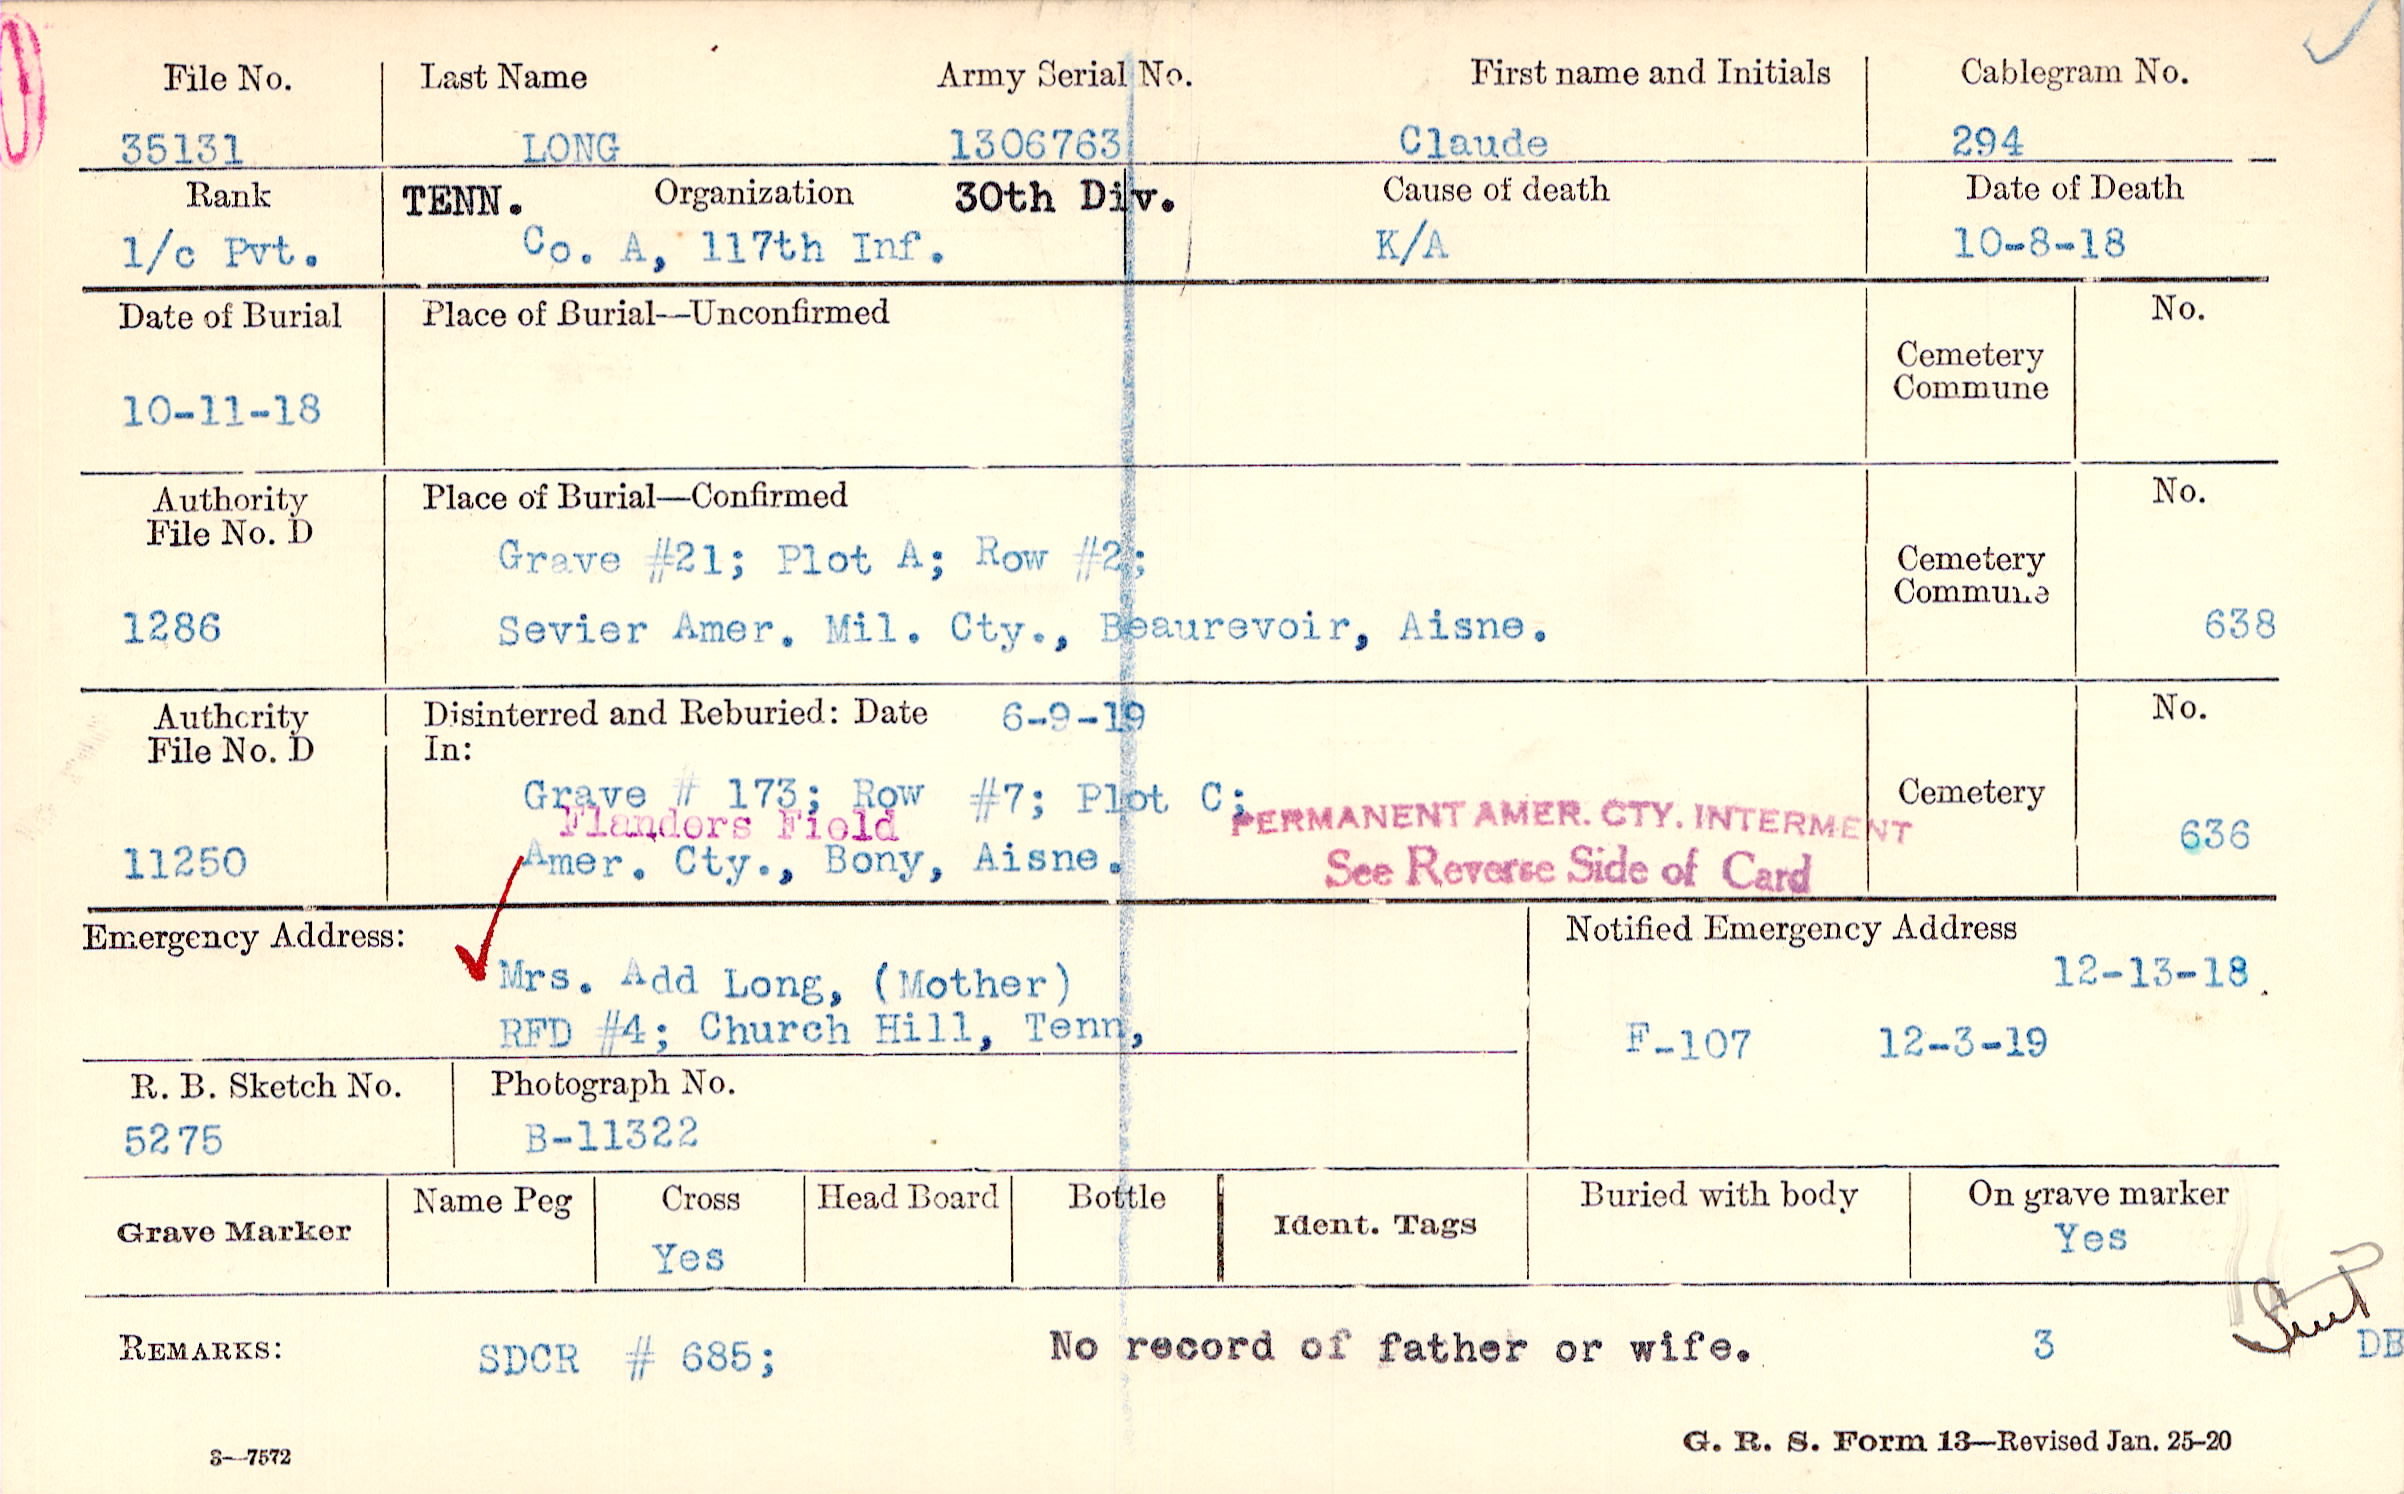 File No. Last Name Army Serial No. First name and Initials Cablegram No.
35131 LONG 1306763 Claude 294
Rank TENN. Organization 30th Div. Cause of death Date of Death
1/c Pvt. Co. A, 117th Inf. K/A 10-8-18
Date of Burial Place of Burial—Unconfirmed No.
Cemetery
Commune
10-11-18
Authority Place of Burial—Confirmed No.
File No. D
Grave #21; Plot A; Row #2; Cemetery
Commune
1286 Sevier Amer. Mil. Cty., Beaurevoir, Aisne. 638
Authority Disinterred and Reburied: Date 6-9-19 No.
File No. D In:
Grave # 173; Row #7; Plot C; Cemetery
Flanders Field PERMANENT AMER. CTY. INTERMENT
11250 Amer. Cty., Bony, Aisne. See Reverse Side of Card 636
Emergency Address: Notified Emergency Address
Mrs. Add Long, (Mother) 12-13-18
RFD #4; Church Hill, Tenn, F-107 12-3-19
R. B. Sketch No. Photograph No.
5275 B-11322
Grave Marker Name Peg Cross Head Board Bottle Ident. Tags Buried with body On grave marker
Yes Yes
REMARKS: SDCR # 685; No record of father or wife. 3 DB
3—7572 G. R. S. Form 13—Revised Jan. 25-20